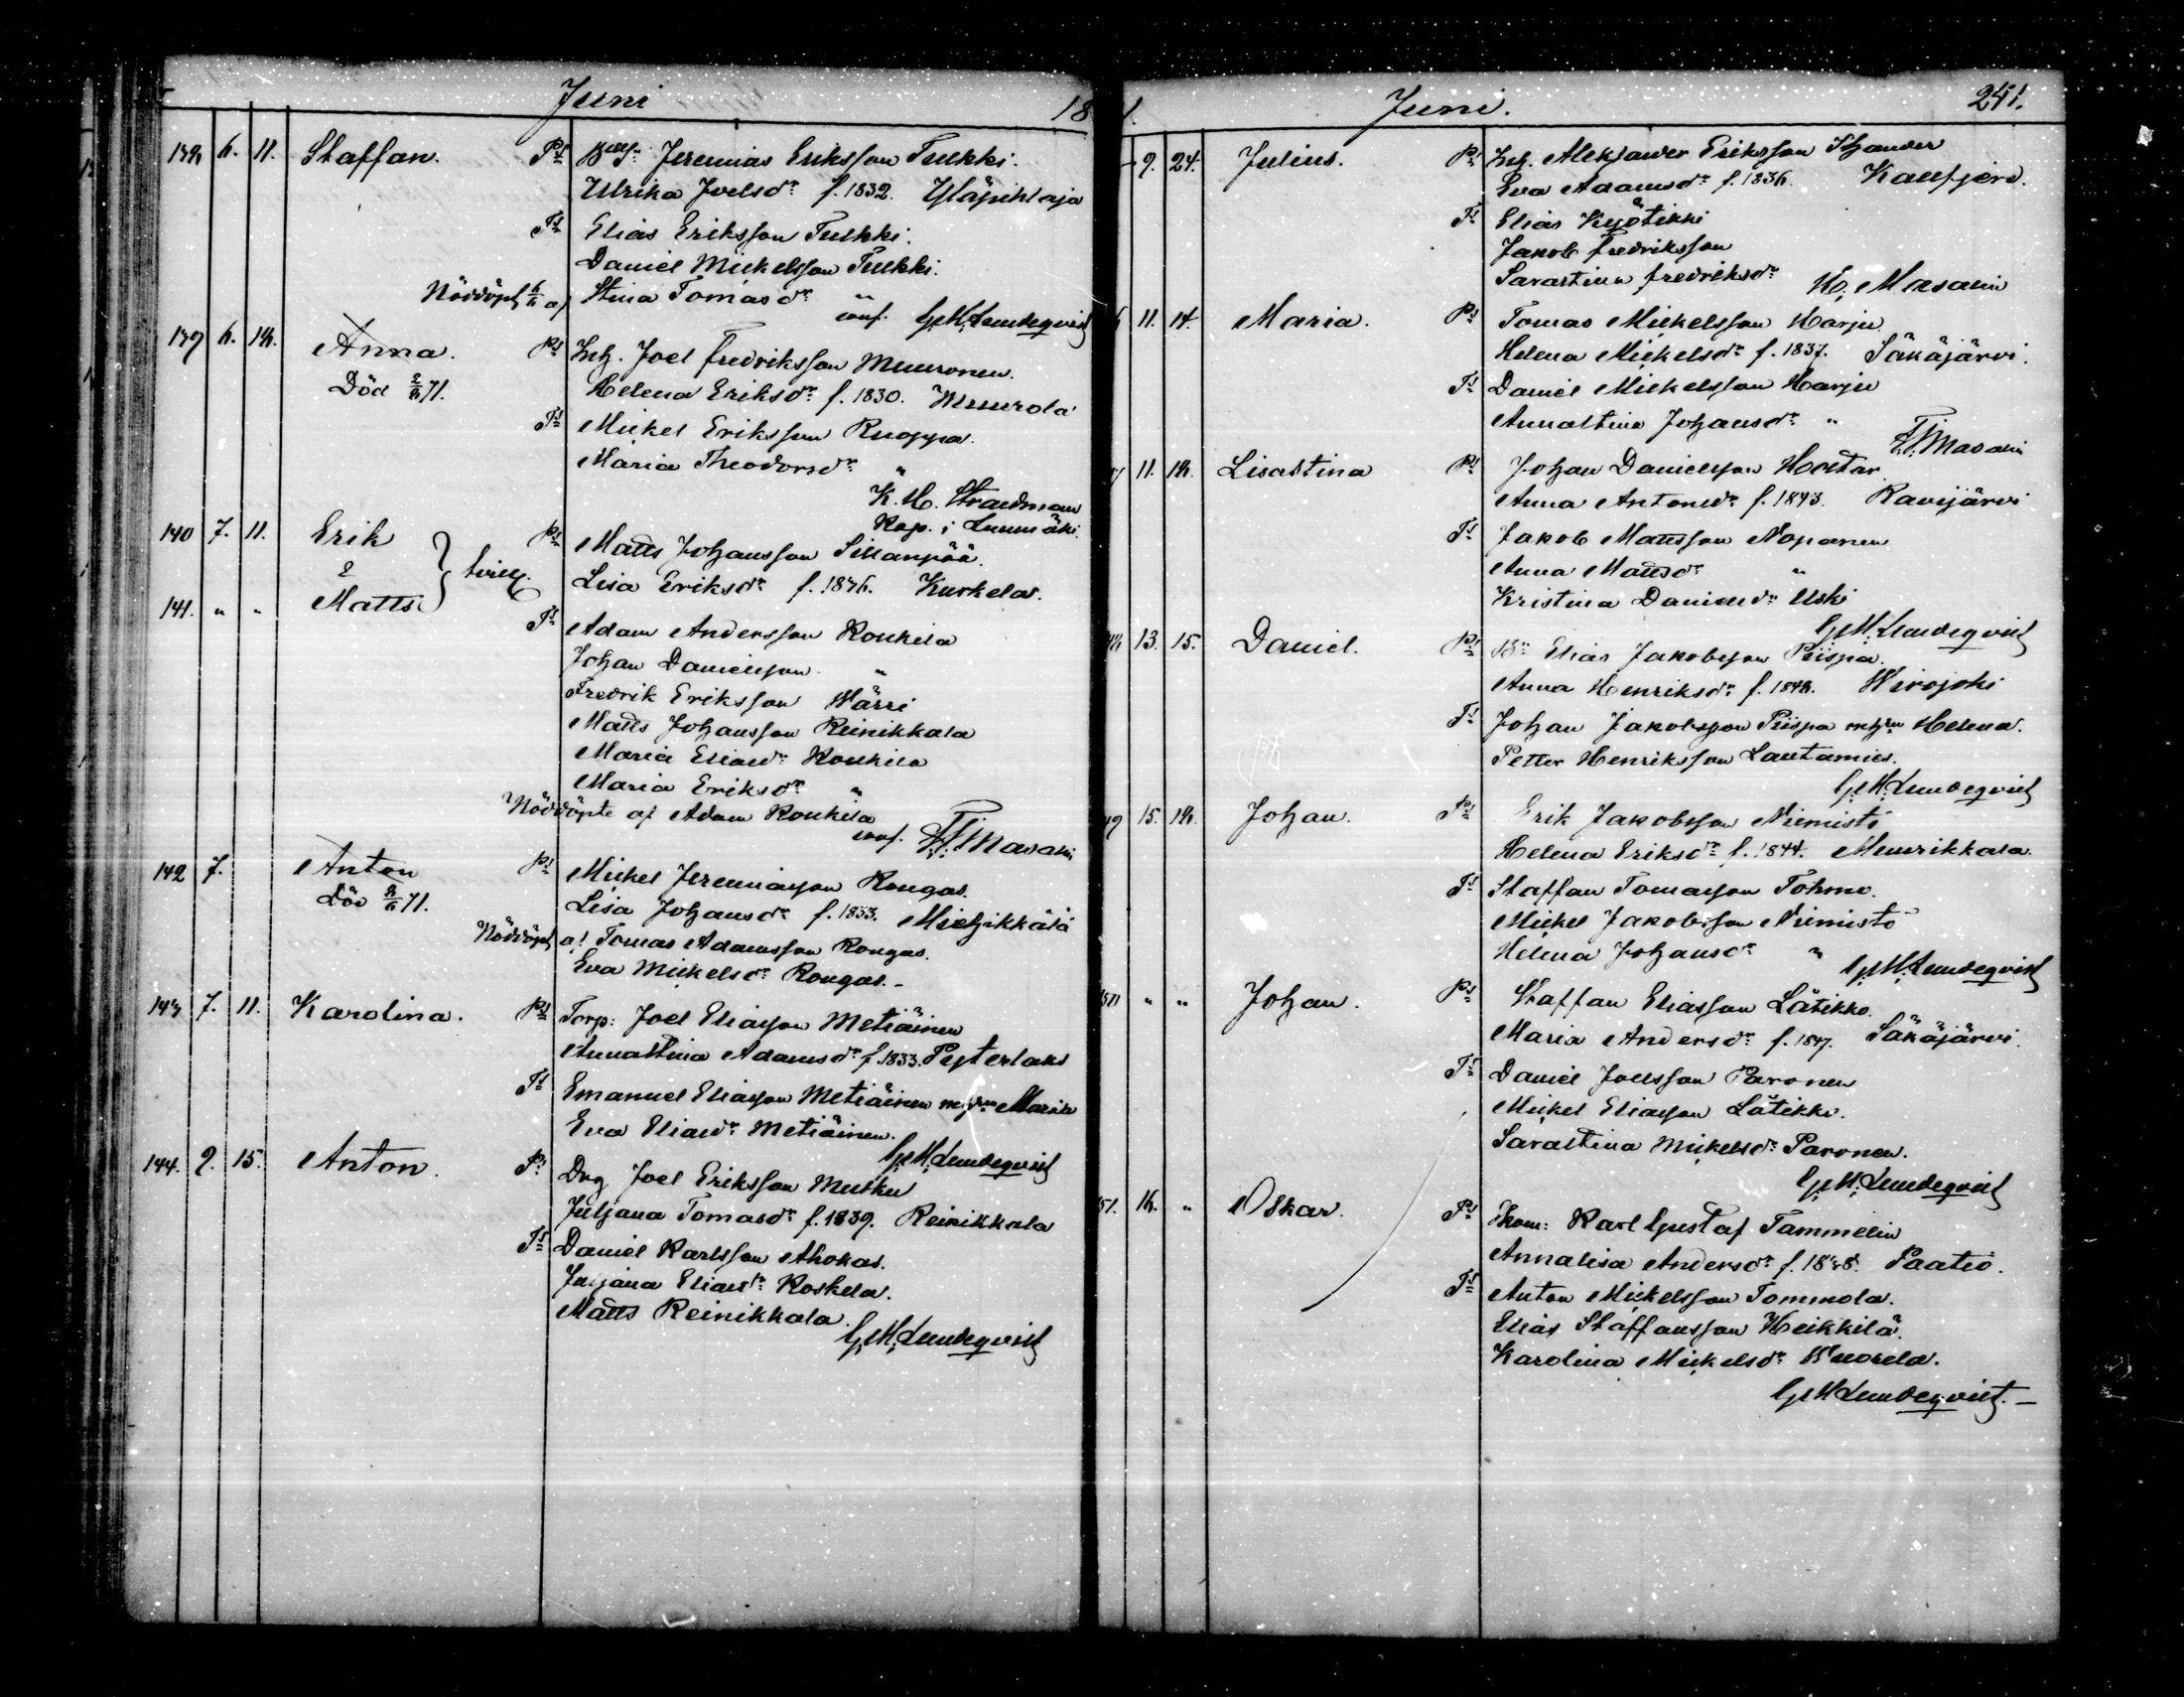 Juni 18
138 6. 11. Staffan. Ps Jeremias Eriksson Tulkki.
Ulrika Joelsdr f. 1832. Yläpihlaja
Ts Elias Eriksson Tulkki.
Daniel Mickelsson Tulkki.
Nöddöpt af Stina Tomasdr "
conf. G.M. Lundeqvist
139 6. 18. Anna. Ps Inh. Joel Fredriksson Muuronen.
Död 71. Helena Eriksdr f. 1830. Muurola
Ts Mickel Eriksson Ruoppa.
Maria Theodorsdr "
K. H. Strandman
Kap. i Luumäki.
140 7. 11. Erik Ps Matts Johansson Sillanpää.
& } tvill. Lisa Eriksdr f. 1846. Kurkela.
141. " " Matts
Ts Adam Andersson Koukila
Johan Danielsson "
Fredrik Eriksson Wärri
Matts Johansson Reinikkala
Maria Eliasdr Koukila
Maria Eriksdr "
Nöddöpte af Adam Koukila
conf. Masalin
142 7. Anton Ps Mickel Jeremiasson Rongas.
Död 71. Lisa Johansdr f. 1833. Miehikkälä
Nöddöpt af Tomas Adamsson Rongas.
Eva Mickelsdr Rongas.-
143 7. 11. Karolina. Ps Torp: Joel Eliasson Metiäinen
Annastina Adamsdr f. 1833. Pyterlaks
Ts Emanuel Eliasson Metiäinen m. hru Maria
Eva Eliasdr Metiäinen.
G.M. Lundeqvist
144. 9. 15. Anton. Ps Drg Joel Eriksson Mutku
Juljana Tomasdr f. 1839. Reinikkala
Ts Daniel Karlsson Ahokas.
Juljana Eliasdr Koskela.
Matts Reinikkala.
G.M. Lundeqvist
1. Juni. 241.
9. 24. Julius. Ps Inh. Aleksander Eriksson
Eva Adamsdr f. 1836.
Ts Elias Kyötikki
Jakob Fredriksson
Sarastina Fredriksdr
Masalin
11. 14. Maria. Ps Tomas Mickelsson Harju
Helena Mickelsdr f. 1837. Säkäjärvi.
Ts Daniel Mickelsson Harju
Annastina Johansdr "
Masalin
11. 18. Lisastina Ps Johan Danielsson
Anna Antonsdr f. 1843. Ravijärvi
Ts Jakob Mattsson Nopanen
Anna Mattsdr "
Kristina Danielsdr Uski
G.M. Lundeqvist
13. 15. Daniel. Ps Elias Jakobsson Piispa.
Anna Henriksdr f. 1848. Wirojoki
Ts Johan Jakobsson Piispa m. hru Helena.
Petter Henriksson Lautamies.
G.M. Lundeqvist
15. 18. Johan. Ps Erik Jakobsson Niemistö
Helena Eriksdr f. 1844. Muurikkala.
Ts Staffan Tomasson Tohmo.
Mickel Jakobsson Niemistö
Helena Johansdr "
G.M. Lundeqvist
" " Johan. Ps Staffan Eliasson Lätikkö.
Maria Andersdr f. 1847. Säkäjärvi.
Ts Daniel Joelsson Paronen
Mickel Eliasson Lätikkö.
Sarastina Mickelsdr Paronen.
G.M. Lundeqvist
51. 16. " Oskar. Ps Skom: Karl Gustaf Tammelin
Annalisa Andersdr Paatio.
Ts Anton Mickelsson Tommola.
Elias Staffansson Heikkilä.
Karolina Mickelsdr Wuorela.
G.M. Lundeqvist.-